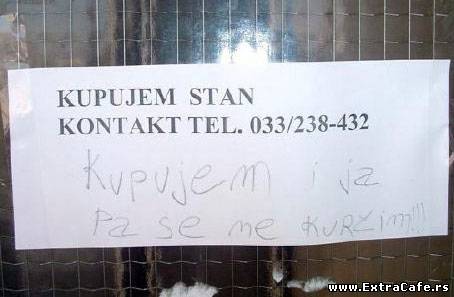 KUPUJEM STAN
KONTAKT TEL. 033/238-432
Kupujem i ja
Pa se ne KURZim!!!
www.ExtraCafe.rs